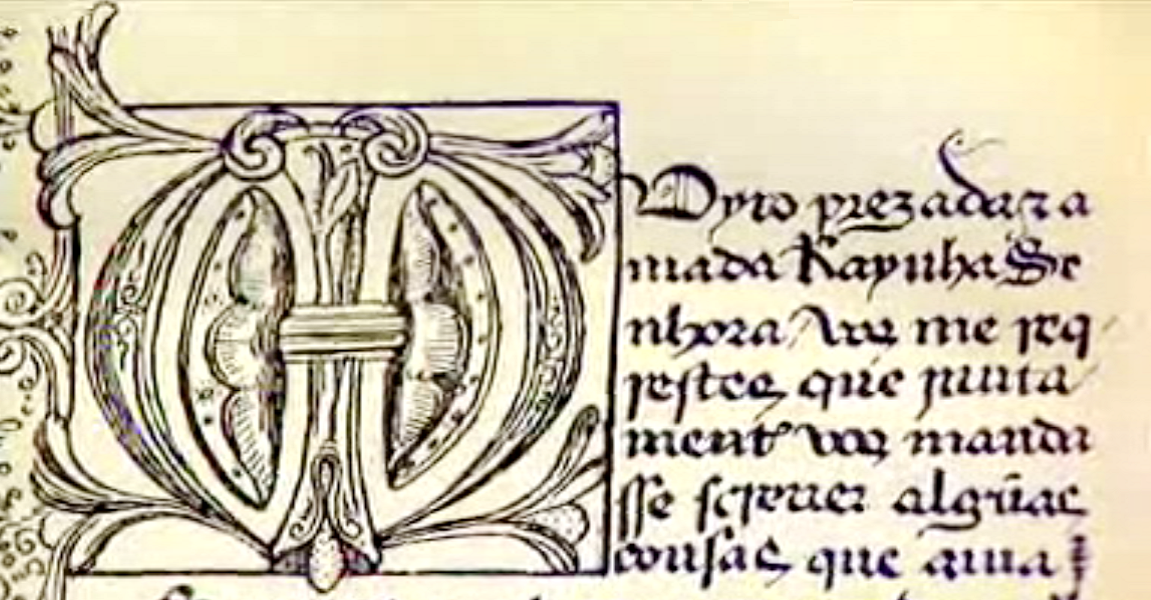 MUyto prezada z a
mada Raynha Se
nhora Vos me req
restes que junta
mente vos manda
sse screuer algũas
cousas que auia